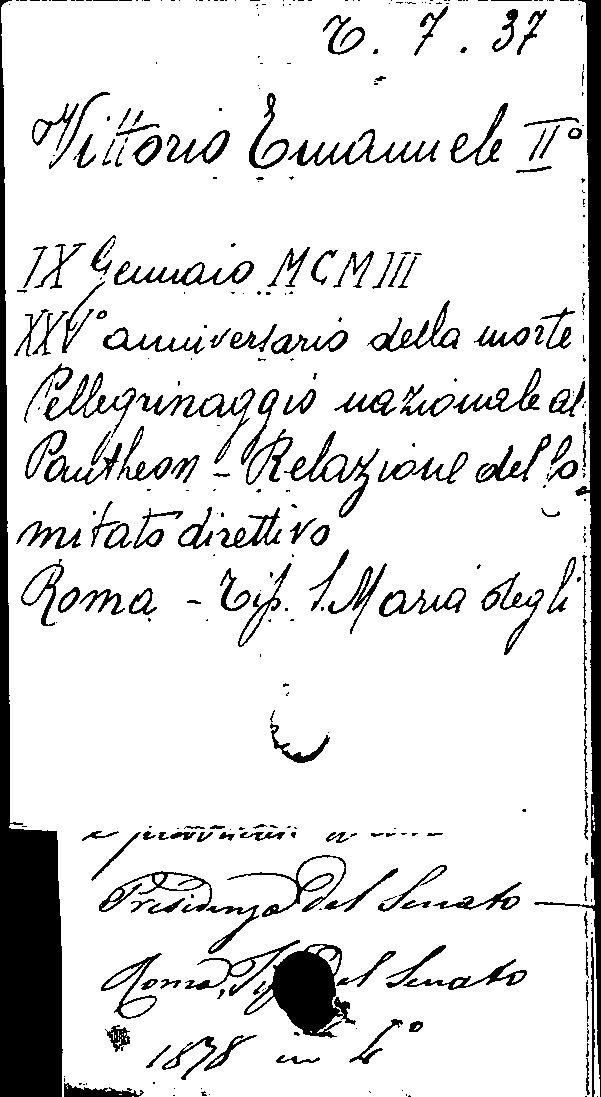 7. 37
Vittorio Emanuele II°
IX Gennaio MCMIII
XXV° anniversario della morte
Pellegrinaggio nazionale al
Pantheon - Relazione del Co
mitato direttivo
Roma - Tip. S. Maria degli
Presidenza del Senato
Roma, Tip. del Senato
1878 in 4°